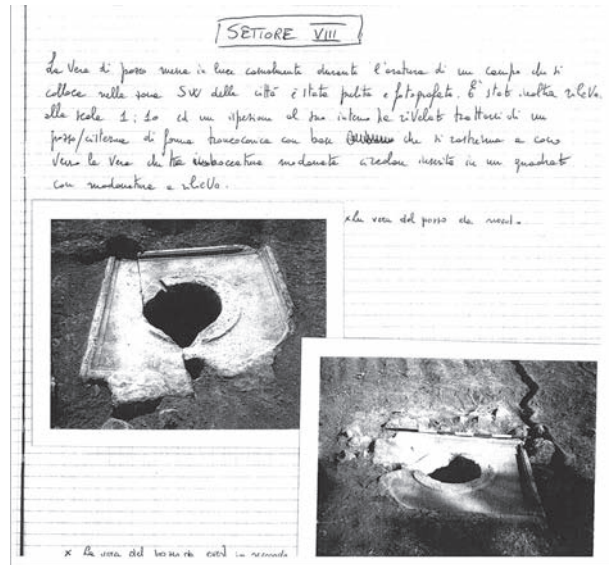 SETTORE VIII
La Vera di pozzo messa in luce casualmente durante l'aratura di un campo che si
colloca nella zona SW della città è stata pulita e fotografata. E' stata inoltre rileva
alla scala 1:10 ed un ispezione al suo interno ha rivelato trattarsi di un
pozzo/cisterna di forma troncoconica con base che si rastrema a cono
verso la vera che ha imboccatura modanata circolare inserita in un quadrato
con modanature a rilievo.
x La vera del pozzo da nord.
x La vera del pozzo da